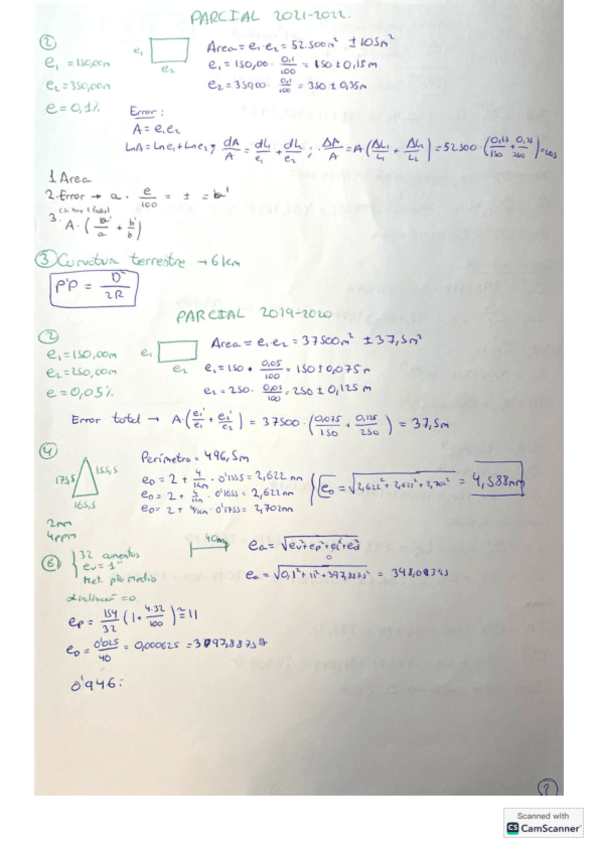 PARCIAL 2021-2022.
②
e₁ = 150,00m
e₂ = 350,00m
e = 0,1%
e₁
e₂
Area = e₁·e₂ = 52.500m² ± 105m²
e₁ = 150,00 · 0,1/100 = 150 ± 0,15m
e₂ = 35000 · 0,1/100 = 350 ± 0,35m
Error:
A = e₁e₂
LnA = Lne₁ + Lne₂; dA/A = dL₁/e₁ + dL₂/e₂; ΔA/A = A(ΔL₁/L₁ + ΔL₂/L₂) = 52500·(0,15/150 + 0,35/350) = 105
1 Area
2. Error → a · e/100 = ± = a'
3. A·(a'/a + b'/b)
③ Curvatura terrestre → 6km
P'P = D²/2R
PARCIAL 2019-2020
②
e₁ = 150,00m
e₂ = 250,00m
e = 0,05%
e₁
e₂
Area = e₁e₂ = 37500m² ± 37,5m²
e₁ = 150 · 0,05/100 = 150 ± 0,075m
e₂ = 250 · 0,05/100 = 250 ± 0,125m
Error total → A·(e₁'/e₁ + e₂'/e₂) = 37500·(0,075/150 + 0,125/250) = 37,5m
④
173,5
155,5
165,5
2mm
4ppm
Perímetro = 496,5m
e_D = 2 + 4/1km · 0'1555 = 2,622mm
e_D = 2 + 4/1km · 0'1655 = 2,622mm
e_D = 2 + 4/1km · 0'1735 = 2,702mm
e_D = √2,622² + 2,622² + 2,702² = 4,588mm
⑥
32 aumentos
e_v = 1"
Met. pto medio
40m
e_a = √e_v² + e_p² + e_l² + e_d²
0
e_a = √0,1² + 11² + 397,8875² = 348,09393
inclinación = 0
e_p = 154/32 (1 + 4·32/100) ≅ 11
e_D = 0'025/40 = 0,000625 = 3097,88758
0'946:
Scanned with
CS CamScanner